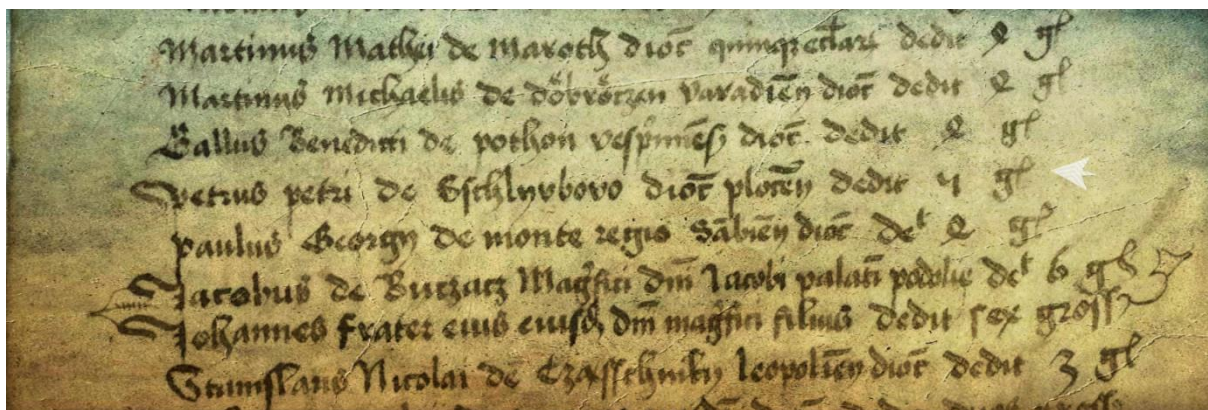 Martinus Mathei de Maroth dioc̄ quinqꝫ eccl̄ar̄ dedit 2 gͬ
Martinus Michaelis de döbrötzen varadien̄ dioc̄ dedit 2 gͬ
Gallus Benedicti de pothon vesp̄rimen̄ dioc̄ dedit 2 gͬ
Petrus petri de dioc̄ plocen̄ dedit 4 gͬ
paulus Georgy de monte regio Sābien̄ dioc̄ deᵗ 2 gͬ
Jacobus de Buczacz Mag̃fici dn̄i Jacobi palati podolie deᵗ 6 gͬ
Johannes frater eius eiusd̄ dn̄i mag̃fici filius dedit sex gross
Stanislaus Nicolai de leopolien̄ dioc̄ dedit 3 gͬ